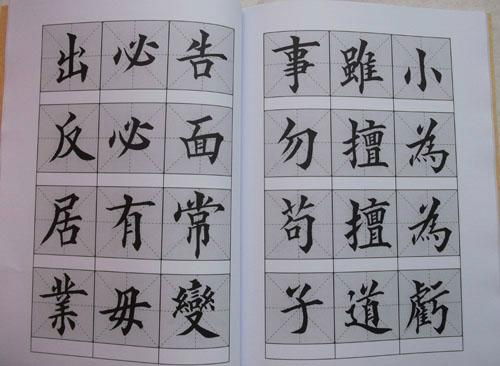 出必告
反必面
居有常
業毋變
事雖小
勿擅為
苟擅為
子道虧